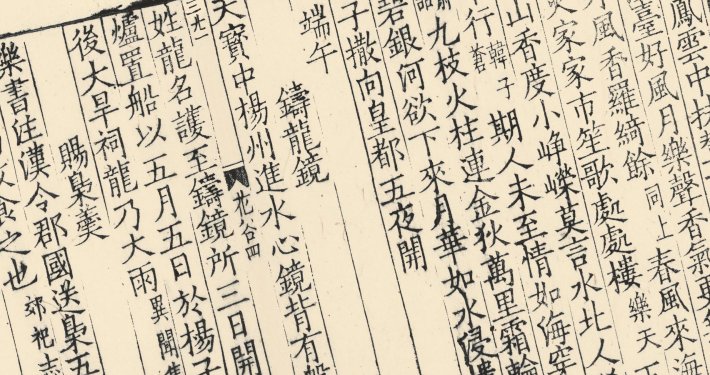 鳳雲中
臺好風月樂聲香氣
風香羅綺餘 同上 春風來海
家家市笙歌處處樓 樂天
山香度小崢嶸莫言水北人
行 韓子蒼 期人未至情如海穿
九枝火柱連金狄萬里霜輪
碧銀河欲下來月華如水浸
子撒向皇都五夜開
端午
鑄龍鏡
天寶中楊州進水心鏡背有盤
花谷四
姓龍名護至鑄鏡所三日開
爐置船以五月五日於楊子
後大旱祠龍乃大雨 異聞集
賜梟羹
樂書注漢令郡國送梟五
食之也 郊祀志